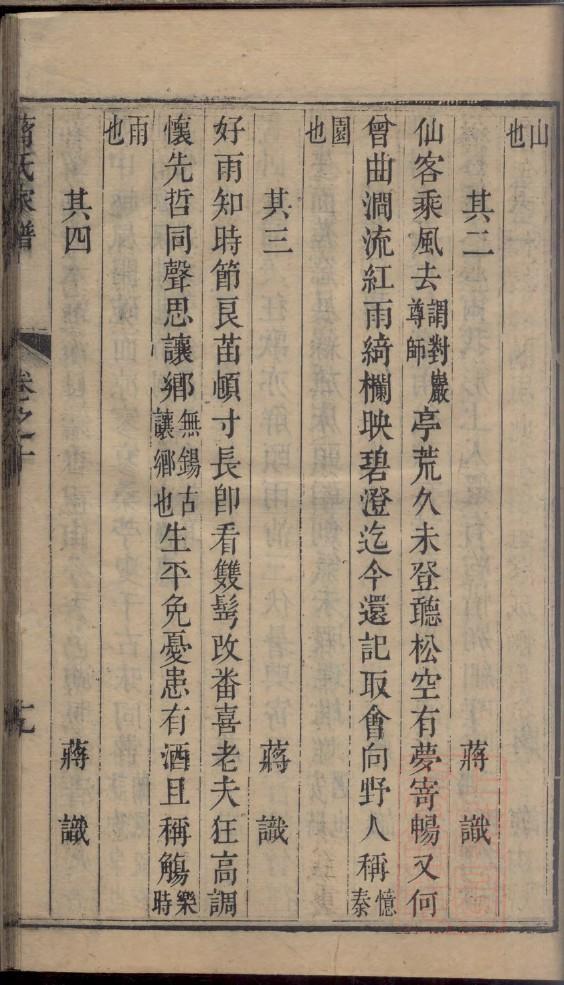 山也
其二 蔣識
仙客乘風去謂對巖尊師亭荒久未登聽松空有夢寄暢又何
曾曲澗流紅雨綺欄映碧澄迄今還記取會向野人稱憶秦
園也
其三 蔣識
好雨知時節良苗頓寸長即看雙髩改番喜老夫狂高調
懷先哲同聲思讓鄉無錫古讓鄉也生平免憂患有酒且稱觴樂時
雨也
其四 蔣識
蔣氏家譜 卷之十 十九